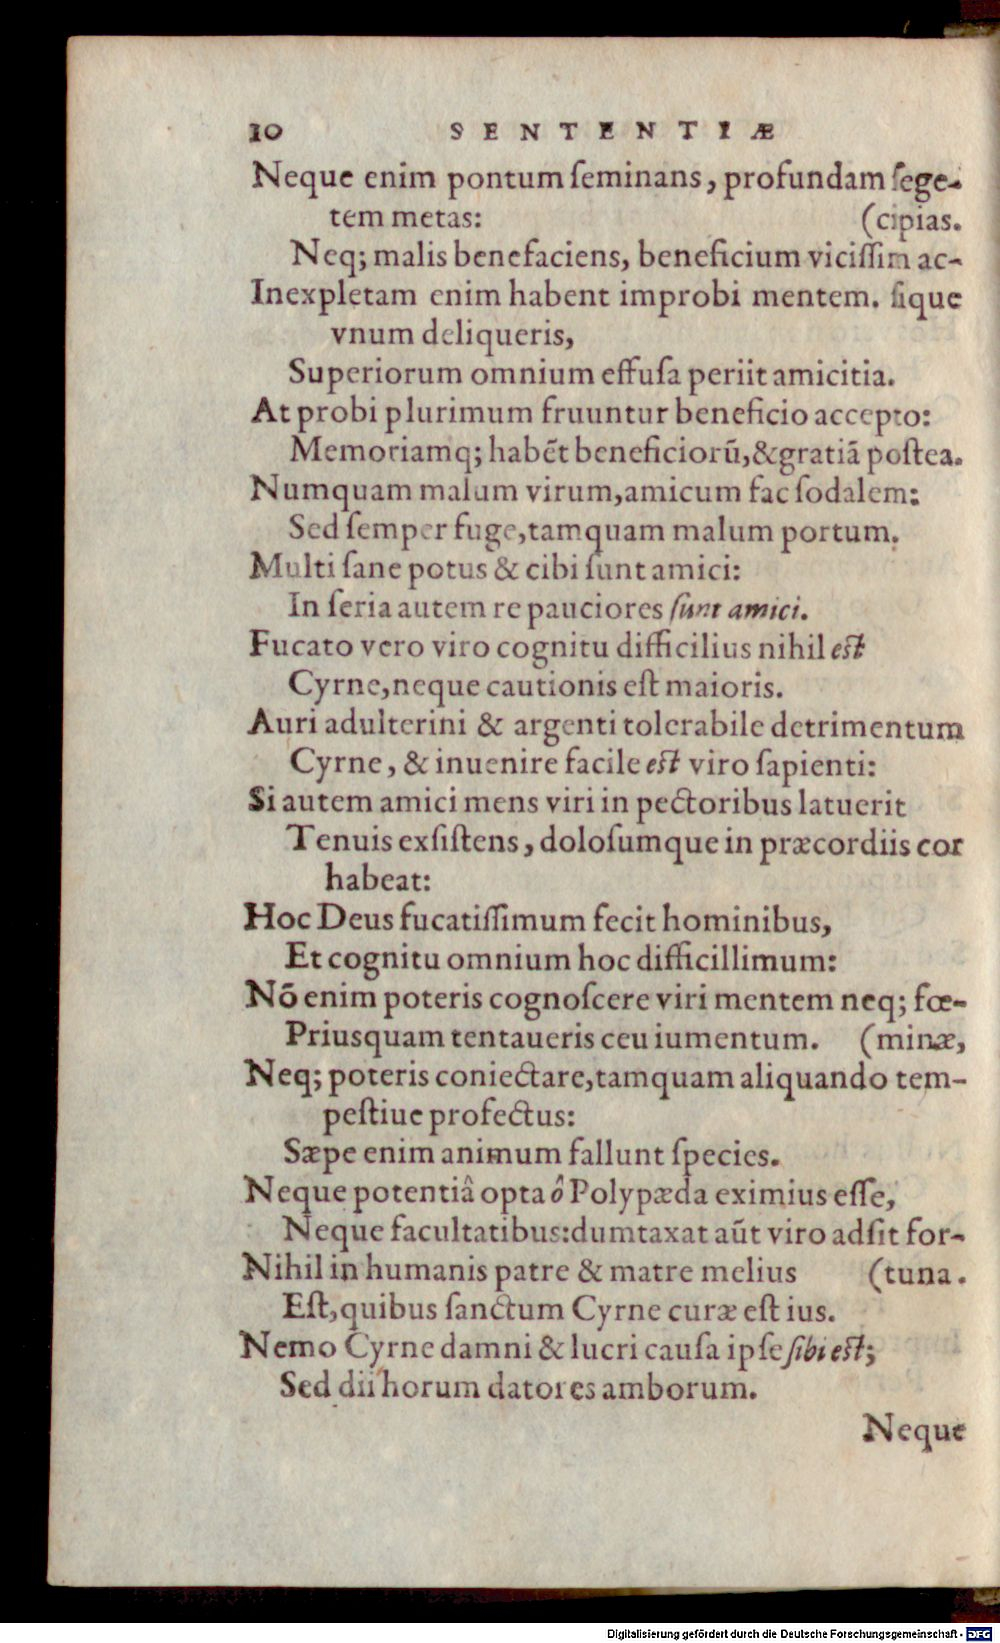 10 SENTENTIÆ
Neque enim pontum ſeminans, profundam ſege-
tem metas: (cipias.
Neq; malis benefaciens, beneficium viciſſim ac-
Inexpletam enim habent improbi mentem. ſique
vnum deliqueris,
Superiorum omnium effuſa periit amicitia.
At probi plurimum fruuntur beneficio accepto:
Memoriamq; habẽt beneficiorũ, & gratiã poſtea.
Numquam malum virum, amicum fac ſodalem:
Sed ſemper fuge, tamquam malum portum.
Multi ſane potus & cibi ſunt amici:
In ſeria autem re pauciores ſunt amici.
Fucato vero viro cognitu difficilius nihil eſt
Cyrne, neque cautionis eſt maioris.
Auri adulterini & argenti tolerabile detrimentum
Cyrne, & inuenire facile eſt viro ſapienti:
Si autem amici mens viri in pectoribus latuerit
Tenuis exſiſtens, doloſumque in præcordiis cor
habeat:
Hoc Deus fucatiſſimum fecit hominibus,
Et cognitu omnium hoc difficillimum:
Nõ enim poteris cognoſcere viri mentem neq; fœ-
Priusquam tentaueris ceu iumentum. (minæ,
Neq; poteris coniectare, tamquam aliquando tem-
peſtiue profectus:
Sæpe enim animum fallunt ſpecies.
Neque potentiâ opta ô Polypæda eximius eſſe,
Neque facultatibus: dumtaxat aũt viro adſit for-
Nihil in humanis patre & matre melius (tuna.
Eſt, quibus ſanctum Cyrne curæ eſt ius.
Nemo Cyrne damni & lucri cauſa ipſe ſibi eſt;
Sed dii horum datores amborum.
Neque
Digitalisierung gefördert durch die Deutsche Forschungsgemeinschaft - DFG